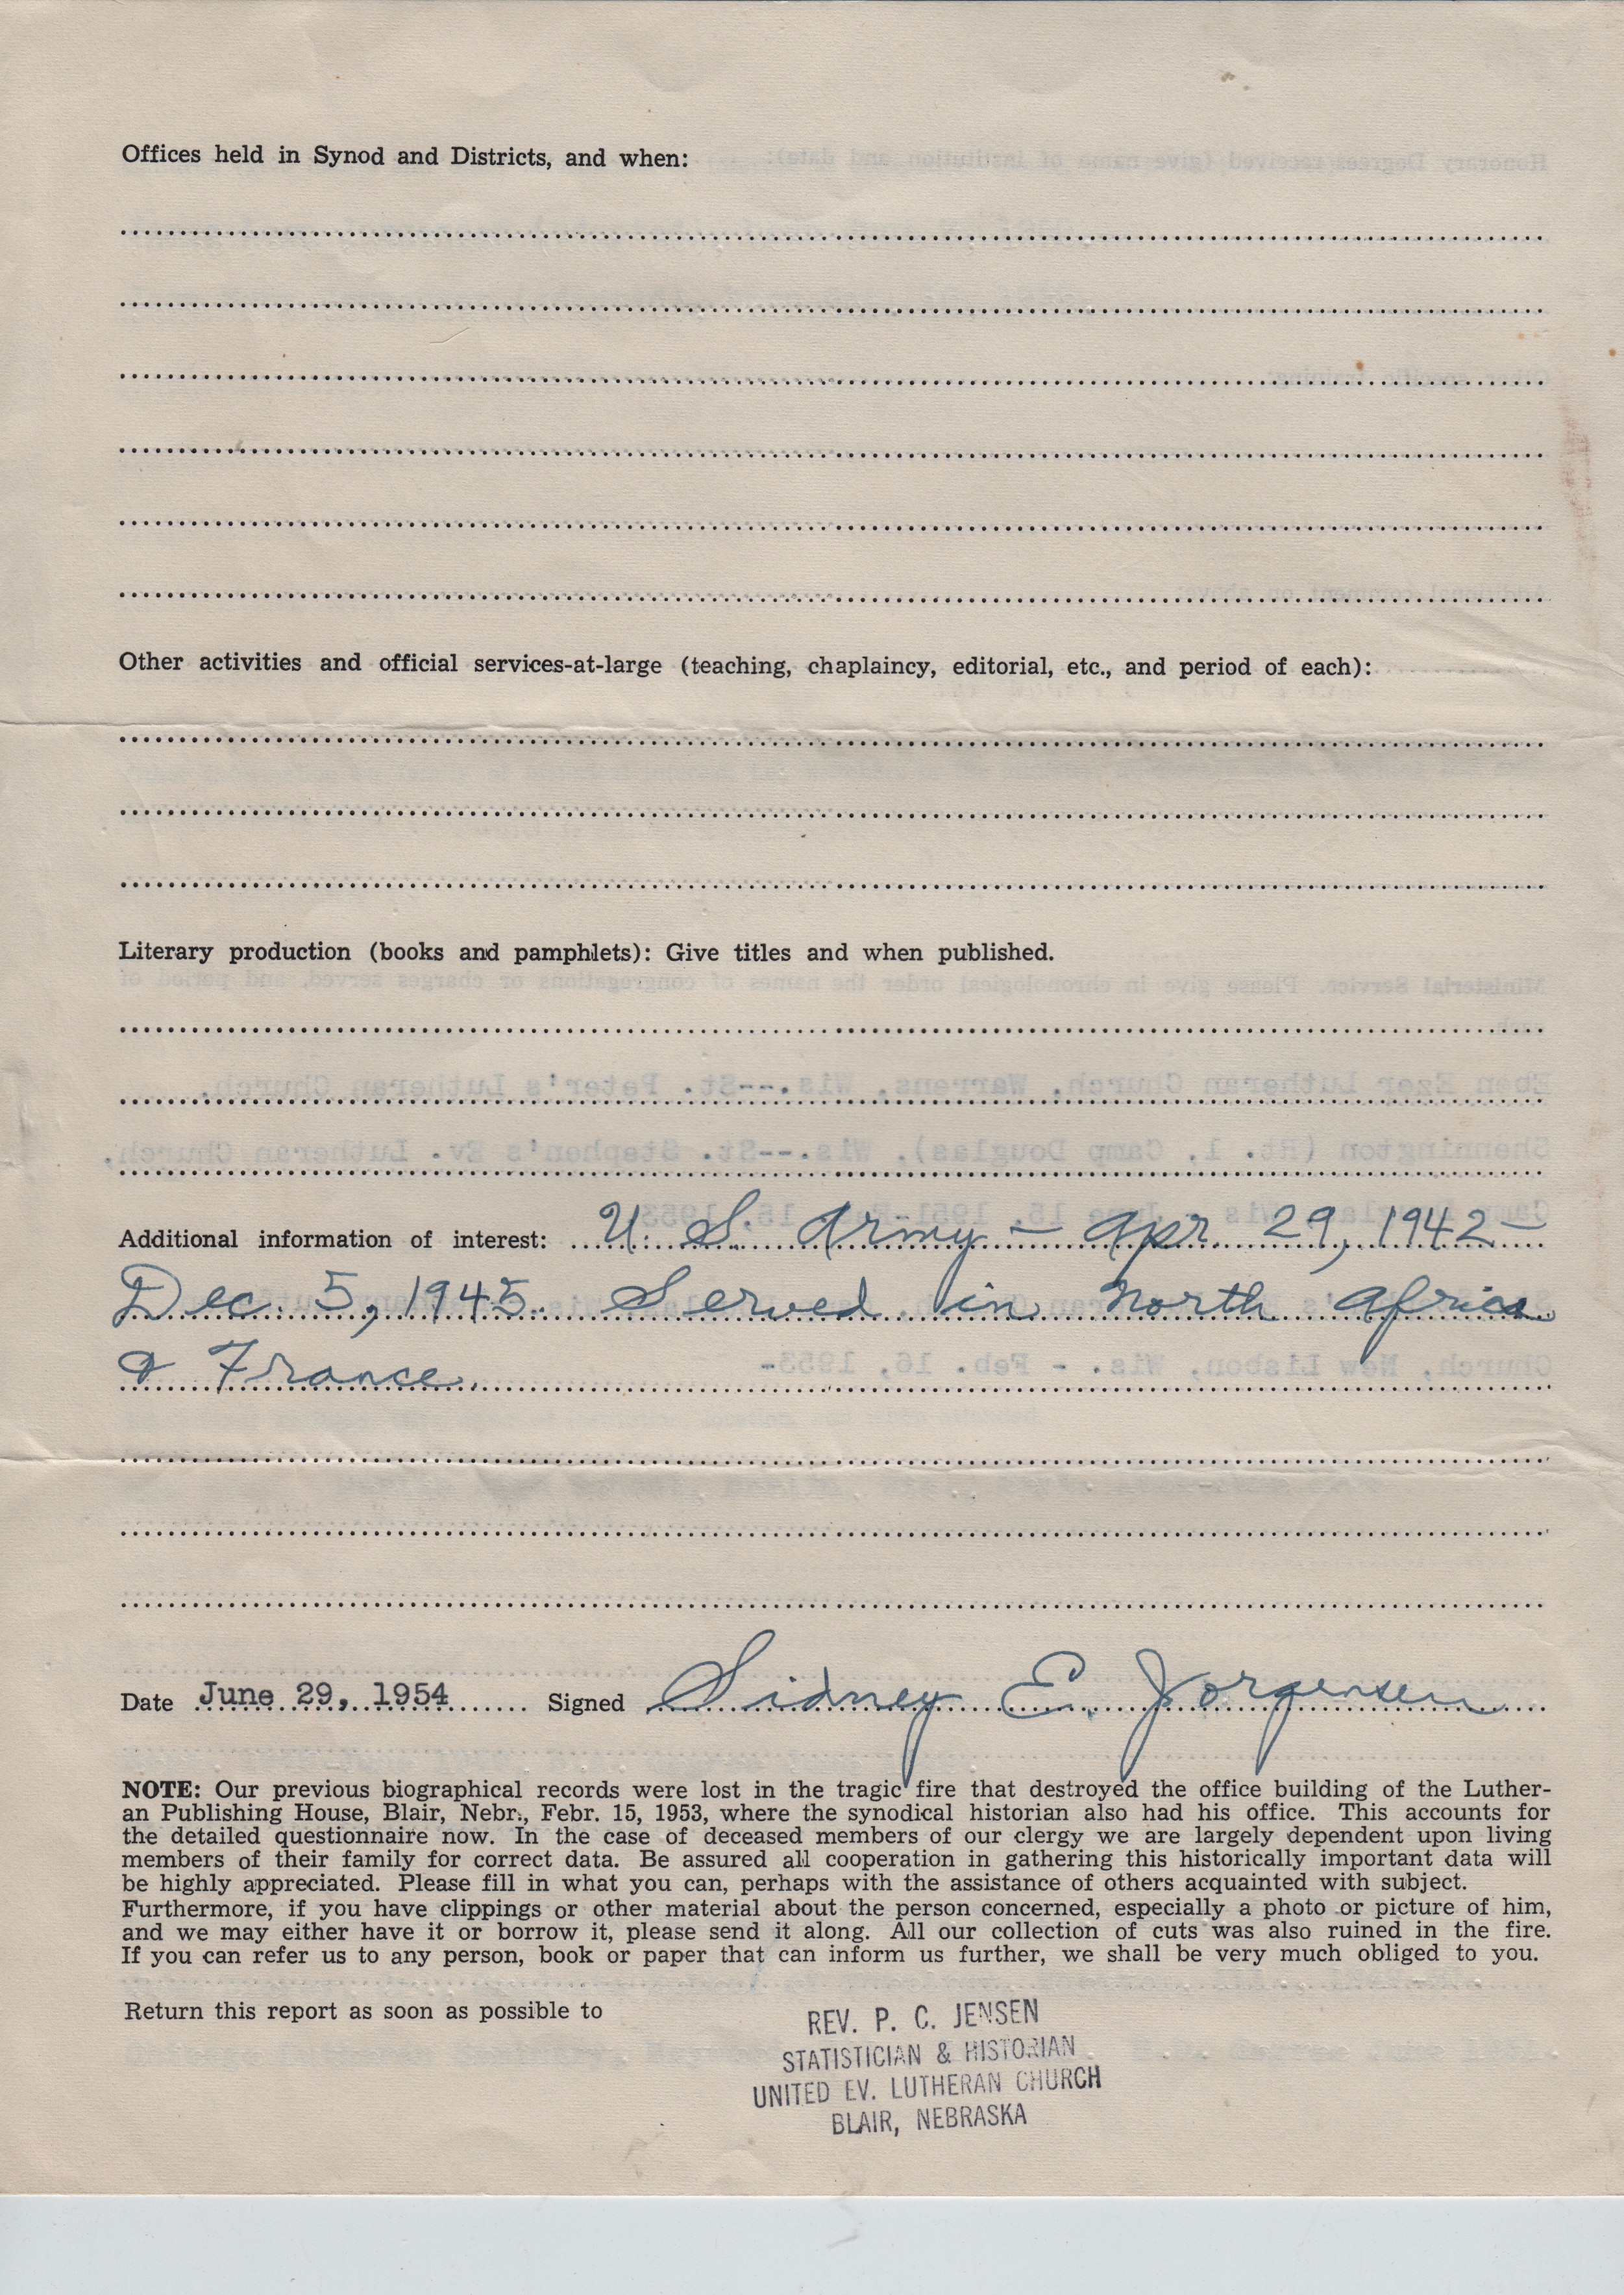 Offices held in Synod and Districts, and when:
Other activities and official services-at-large (teaching, chaplaincy, editorial, etc., and period of each):
Literary production (books and pamphlets): Give titles and when published.
Additional information of interest: U. S. Army – Apr. 29, 1942 –
Dec. 5, 1945. Served in North Africa
& France.
Date June 29, 1954 Signed Sidney E. Jorgensen
NOTE: Our previous biographical records were lost in the tragic fire that destroyed the office building of the Luther-
an Publishing House, Blair, Nebr., Febr. 15, 1953, where the synodical historian also had his office. This accounts for
the detailed questionnaire now. In the case of deceased members of our clergy we are largely dependent upon living
members of their family for correct data. Be assured all cooperation in gathering this historically important data will
be highly appreciated. Please fill in what you can, perhaps with the assistance of others acquainted with subject.
Furthermore, if you have clippings or other material about the person concerned, especially a photo or picture of him,
and we may either have it or borrow it, please send it along. All our collection of cuts was also ruined in the fire.
If you can refer us to any person, book or paper that can inform us further, we shall be very much obliged to you.
Return this report as soon as possible to
REV. P. C. JENSEN
STATISTICIAN & HISTORIAN
UNITED EV. LUTHERAN CHURCH
BLAIR, NEBRASKA